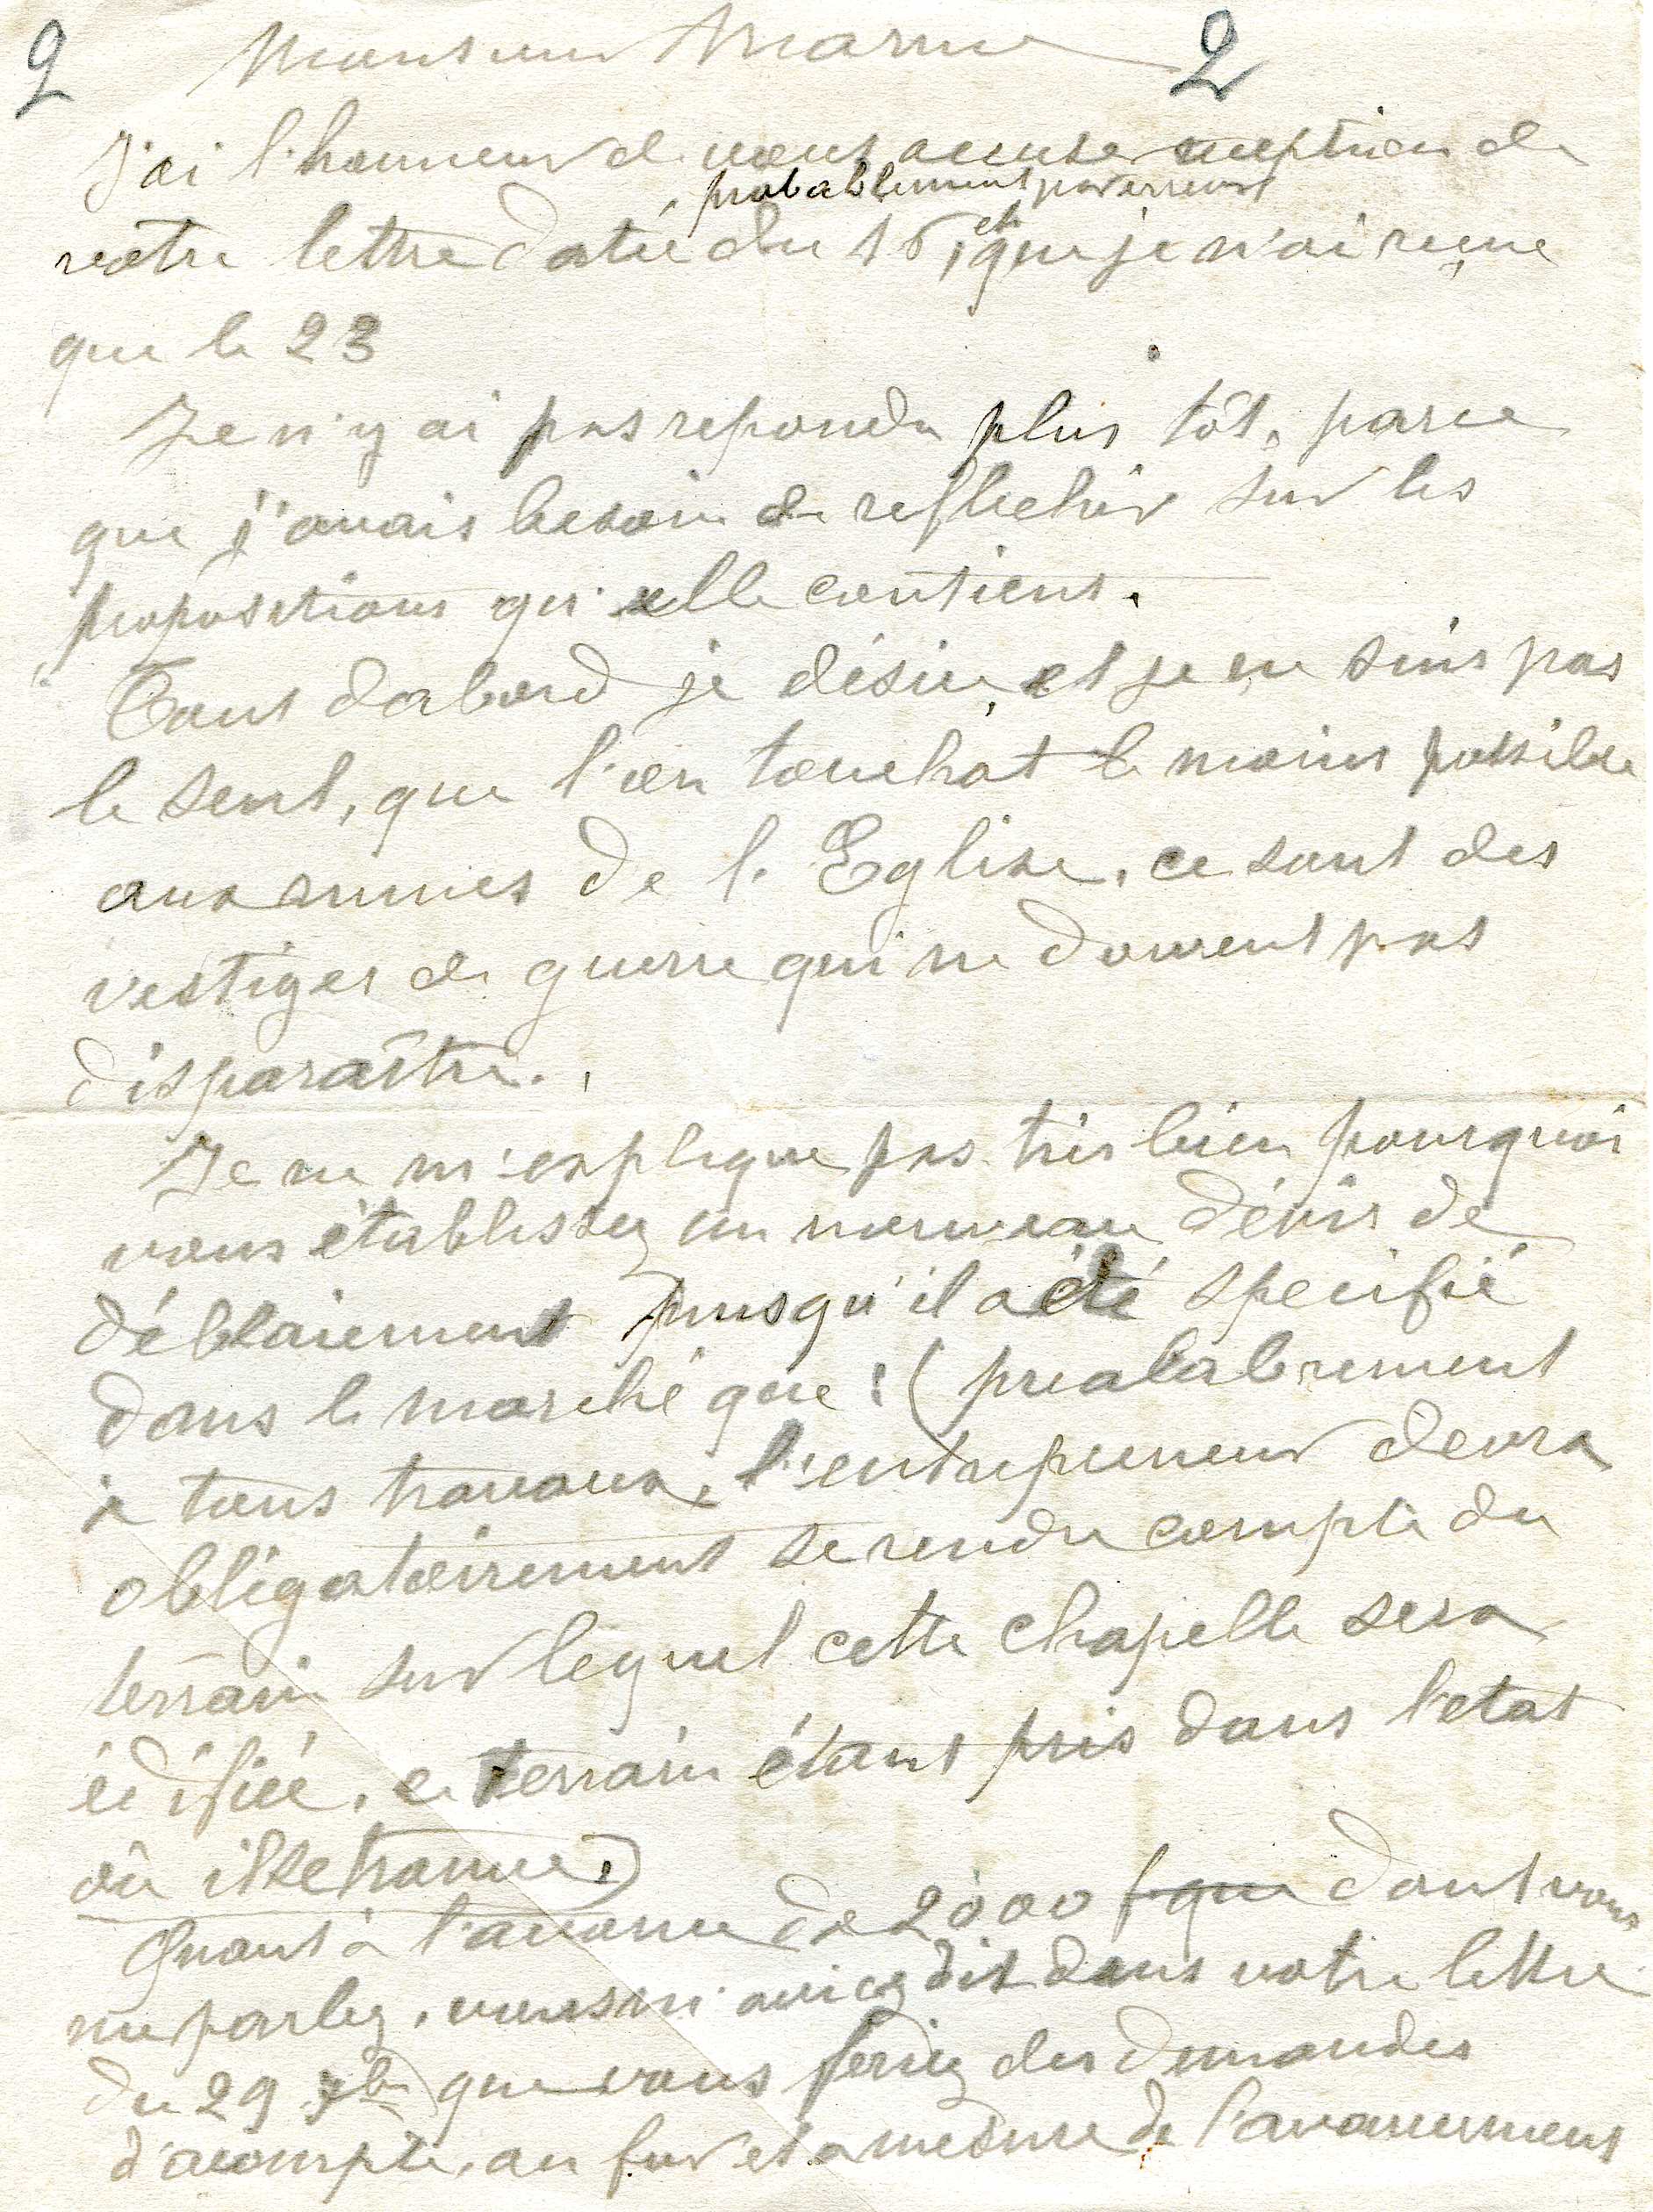 2 Monsieur Marme 2
J'ai l'honneur de vous accuser reception de
probablement par erreur
votre lettre datée du 16, et que je n'ai reçue
que le 23
Je n'y ai pas repondu plus tôt, parce
que j'avais besoin de reflechir sur les
propositions qu'elle contient.
Tout dabord je désire, et je ne suis pas
le seul, que l'on touchat le moins possible
aux ruines de l'Eglise. ce sont des
vestiges de guerre qui ne doivent pas
disparaître.
Je ne m'explique pas très bien pourquoi
vous établissez un nouveau dévis de
déblaiement puisqu'il a été specifié
dans le marché que : (prealablement
à tous travaux, l'entrepreneur devra
obligatoirement se rendre compte du
terrain sur lequel cette chapelle sera
édifiée, ce terrain étant pris dans l'etat
où il se trouve.)
Quant à l'avance de 2000 f que dont vous
me parlez, vous m'aviez dit dans votre lettre
du 29 7bre que vous feriez des demandes
d'acompte, au fur et a mesure de l'avancement